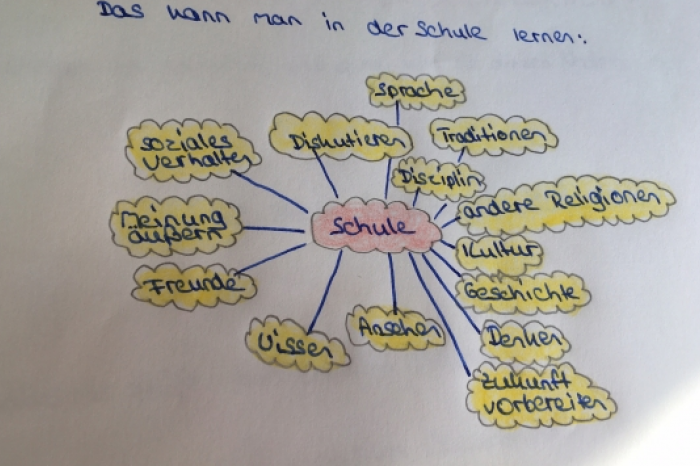 Das kann man in der Schule lernen:
Sprache
Diskutieren
Traditionen
soziales
Verhalten
Disciplin
andere Religionen
Meinung
äußern
Schule
Kultur
Freunde
Geschichte
Wissen
Ansehen
Denken
Zukunft
vorbereiten